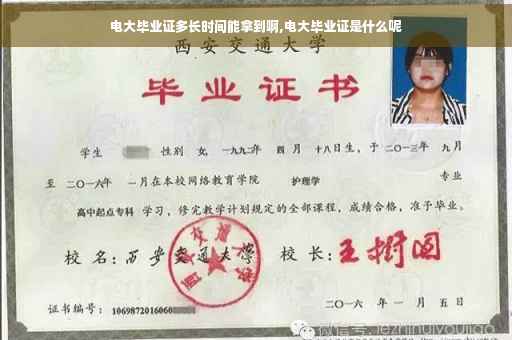 电大毕业证多长时间能拿到啊,电大毕业证是什么呢
西安交通大学
毕业证书
学生 性别 女, 一九九二年 四 月 十八日生, 于 二〇一三年 九月
至 二〇一六年 一月在本校网络教育学院 护理学 专业
高中起点专科 学习, 修完教学计划规定的全部课程, 成绩合格, 准予毕业。
校 名: 西安交通大学 校 长: 王树国
西安交通大学
证书编号: 1069872016060
二〇一六 年 一 月 五 日
微信号: jiezhihuiyoujiao